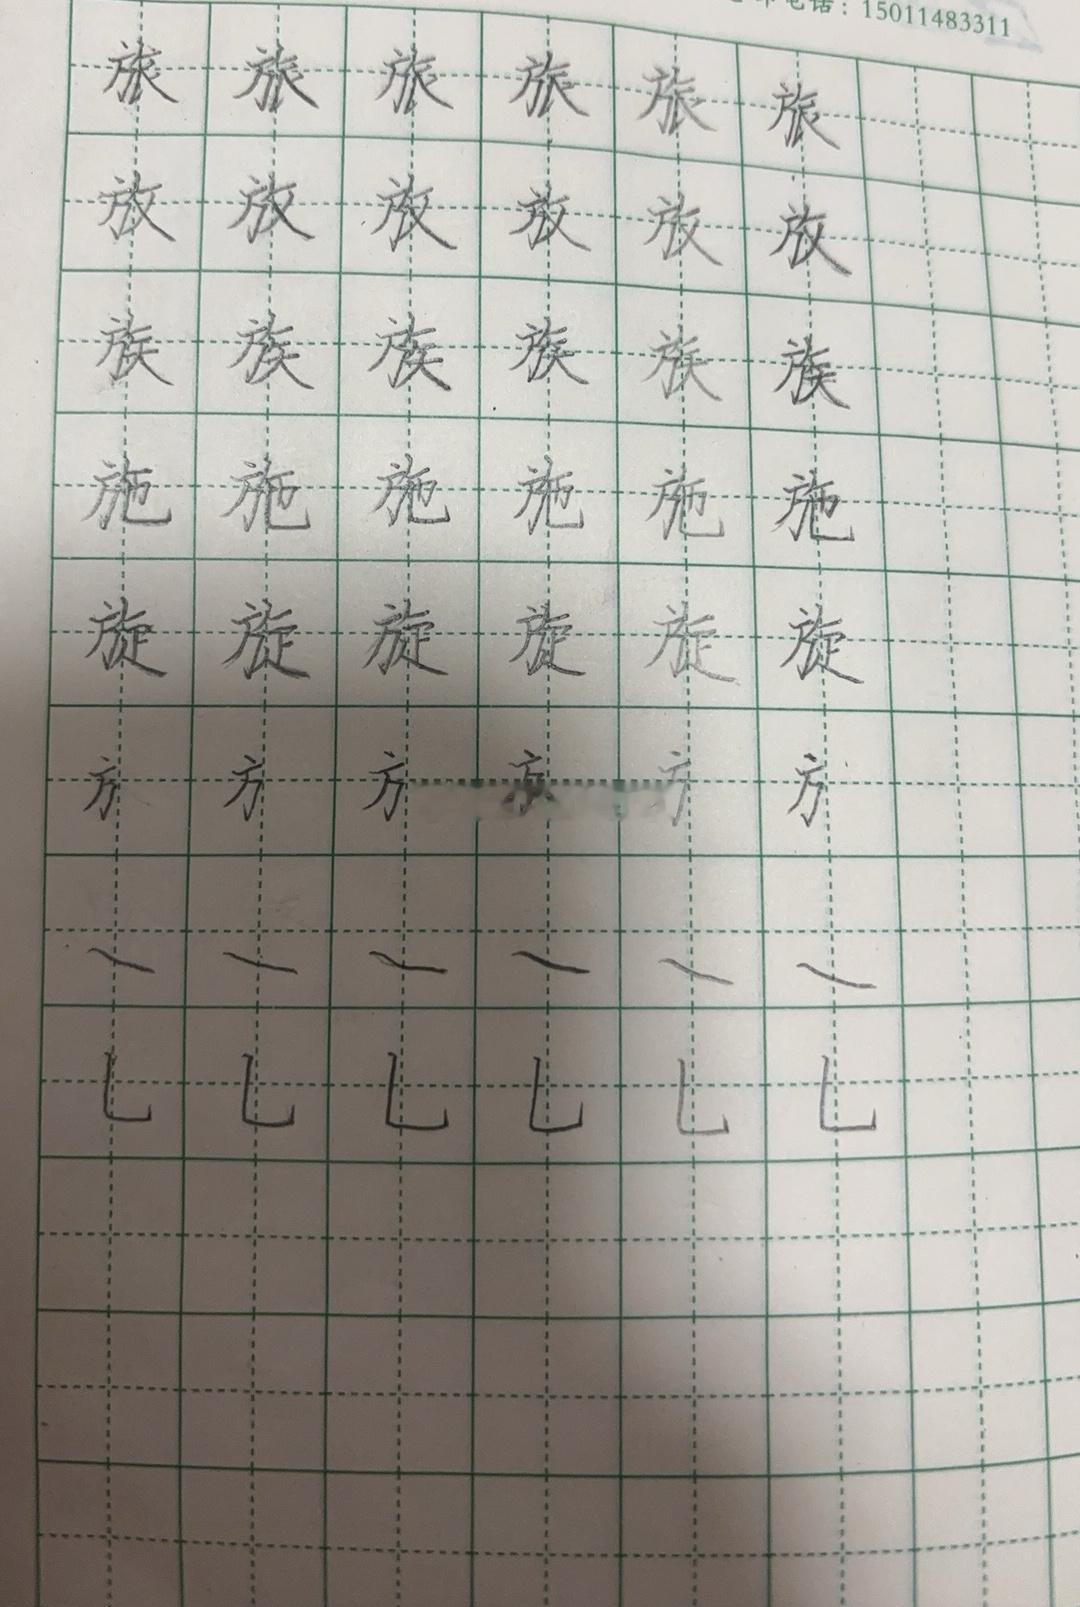 电话：15011483311
旅 旅 旅 旅 旅 旅
放 放 放 放 放 放
族 族 族 族 族 族
施 施 施 施 施 施
旋 旋 旋 旋 旋 旋
方 方 方 方 方 方
㇏ ㇏ ㇏ ㇏ ㇏ ㇏
乚 乚 乚 乚 乚 乚